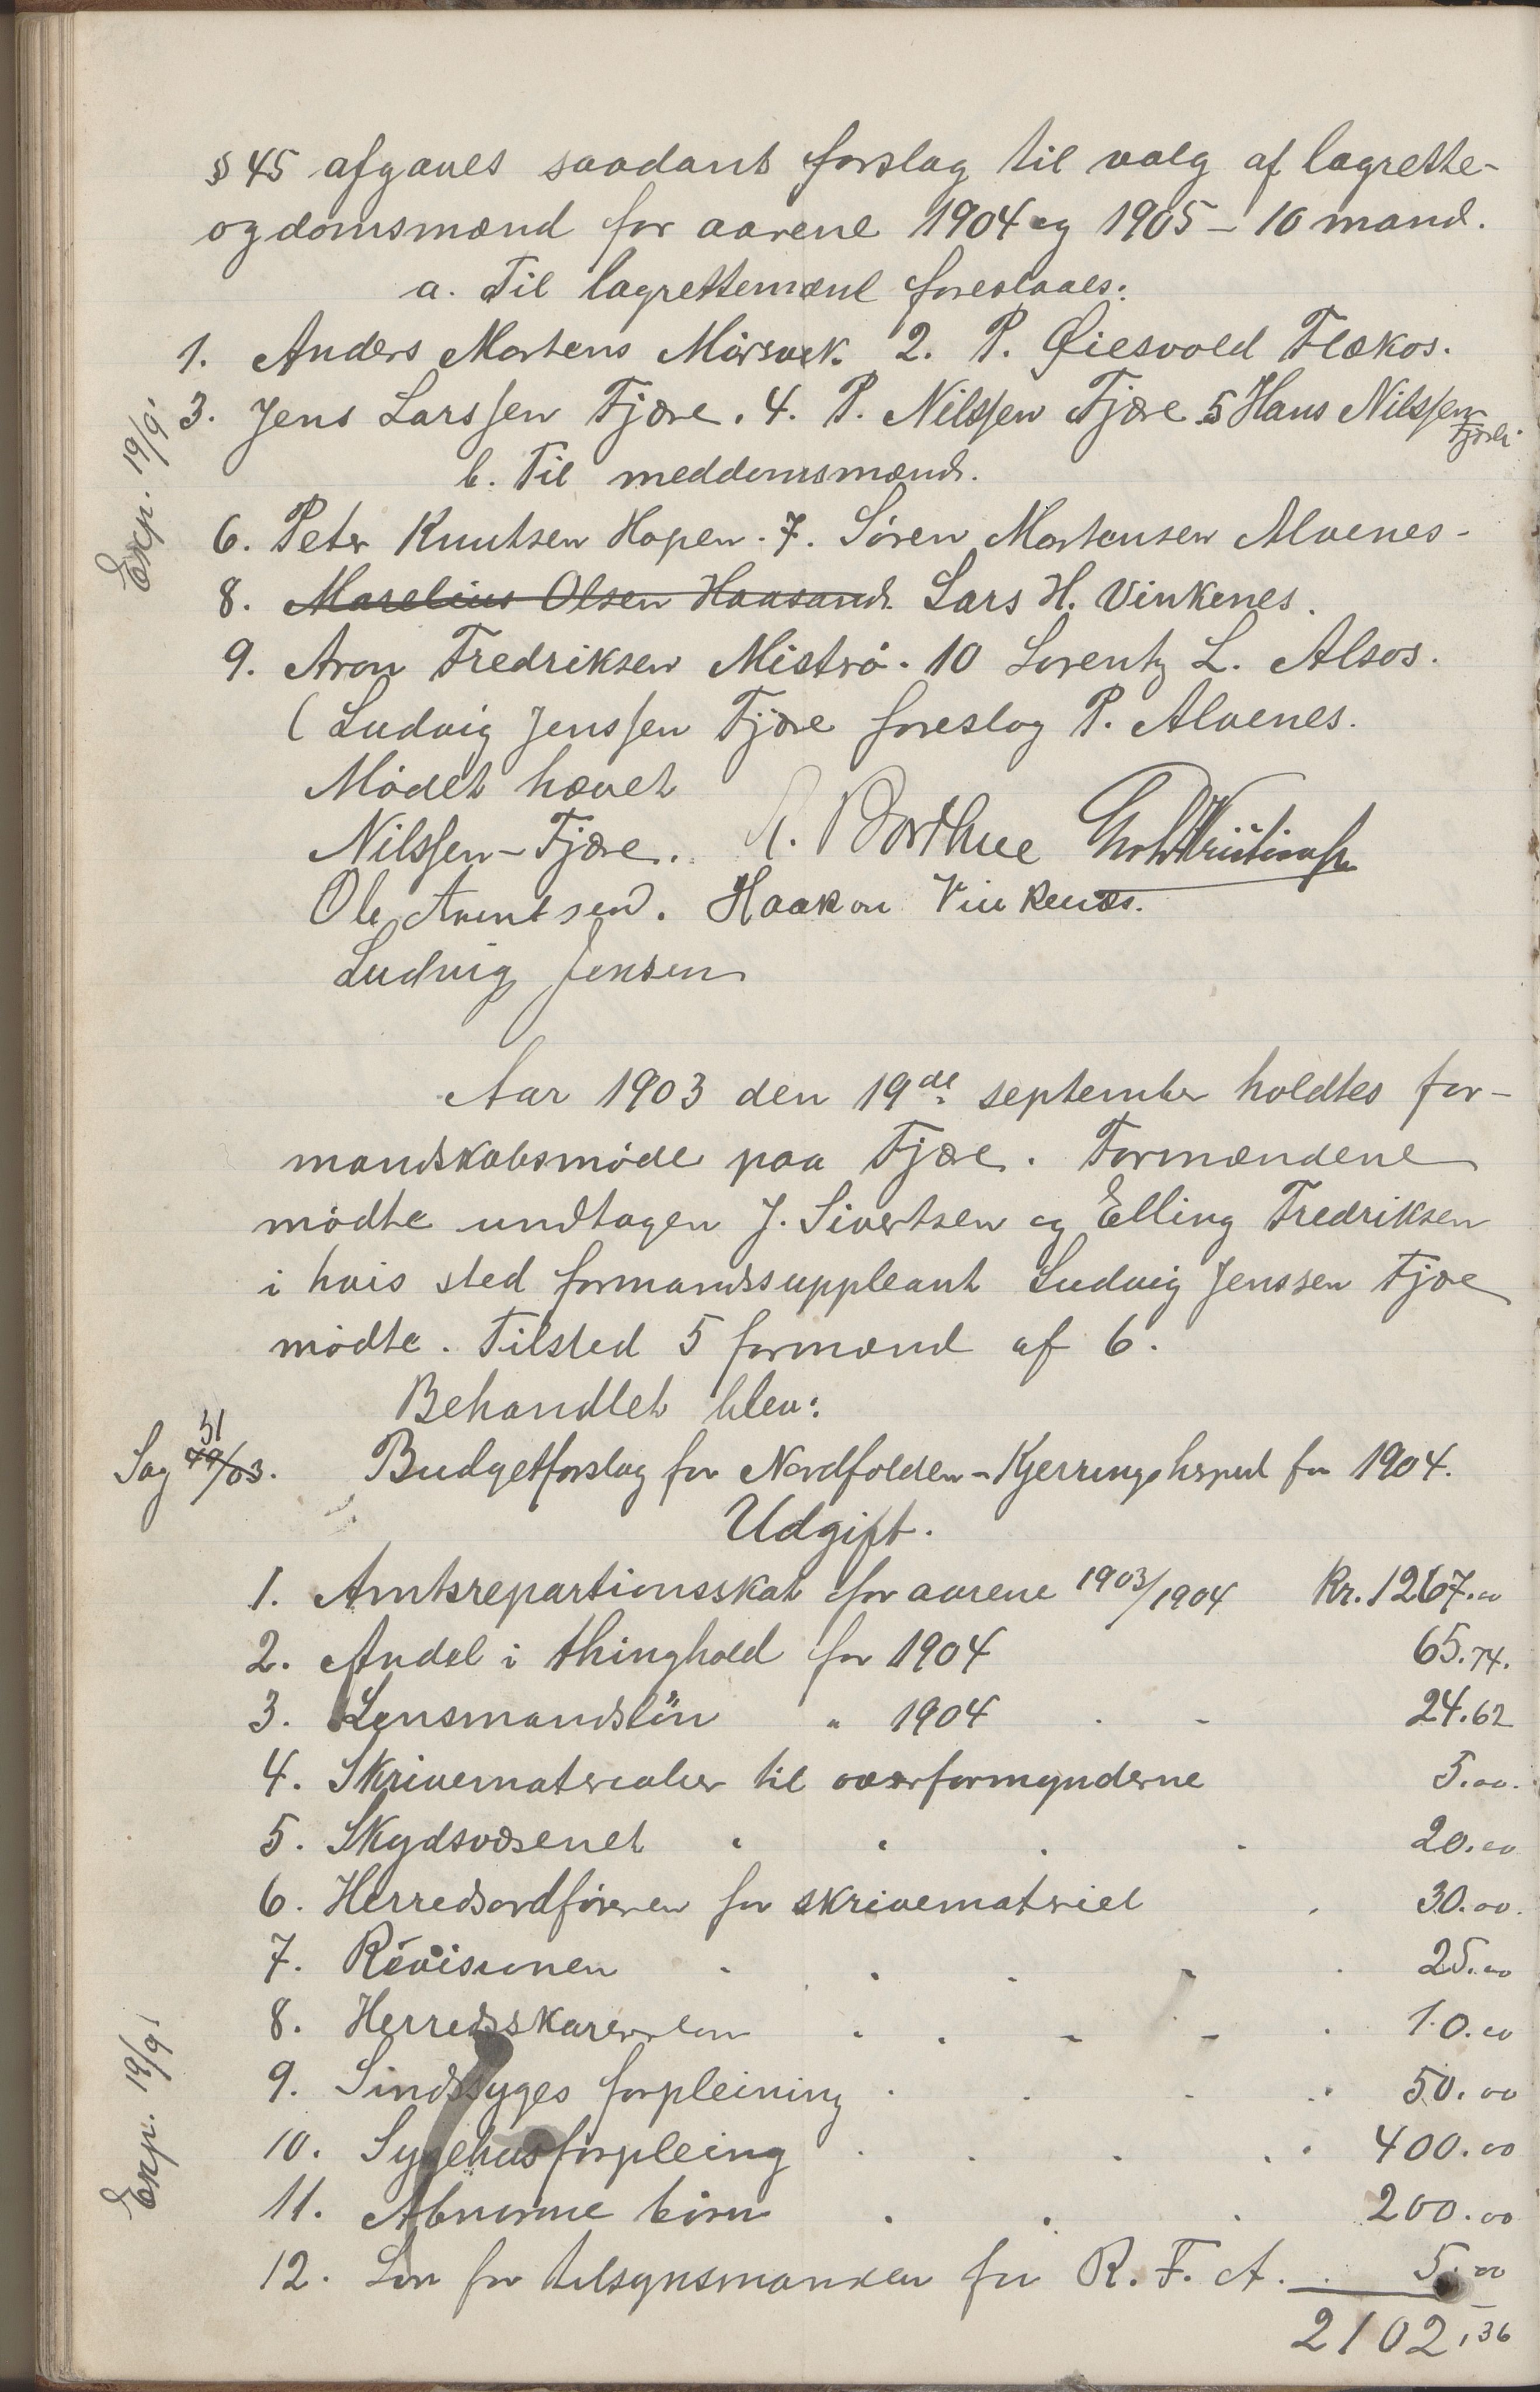 § 45 afgaves saadant forslag til valg af lagrette-
og domsmænd for aarene 1904 og 1905 – 10 mand.
a. Til lagrettemænd foreslaaes:
1. Anders Mortens Mørsvik 2. P. Øiesvold Flækos.
3. Jens Larssen Fjære. 4. P. Nilssen Fjære 5 Hans Nilssen
Exp. 19/9.
b. Til meddomsmænd.
6. Peter Knutsen Hopen. 7. Søren Mortensen Alvenes -
8. Marelius Olsen Haasand. Lars H. Vinkenes.
9. Aron Fredriksen Mistrø. 10 Lorentz L. Alsos.
( Ludvig Jenssen Fjære foreslog P. Alvenes.
Mødet hævet
Nilssen - Fjære. Borthue
Ole Arntsen. Haakon Vinkenæs.
Ludvig Jensen
Aar 1903 den 19de september holdtes for-
mandskabsmøde paa Fjære. Formændene
mødte undtagen J. Sivertsen og Elling Fredriksen
i hvis sted formandssuppleant Ludvig Jenssen Fjære
mødte. Tilsted 5 formænd af 6.
Behandlet blev:
Sag 51/03. Budgetforslag for Nordfolden - Kjerringø hspred for 1904.
Udgift.
1. Amtsrepartionsskat for aarene 1903/1904 Kr. 1267.00
2. Andel i thinghold for 1904 65.74.
3. Lensmandsløn " 1904 24.62
4. Skrivematerialier til overformynderne 5.00.
5. Skydsvæsenet 20.00
6. Herredsordføreren for skrivematriel 30.00.
7. Revisionen 25.00
8. Herredsskareren 10.00
9. Sindssyges forpleining 50.00
10. Sygehusforpleing 400.00
11. Abnorme børn 200.00
12. Løn for tilsynsmanden for R. F. A. 5.00
Exp. 19/9
2102,36